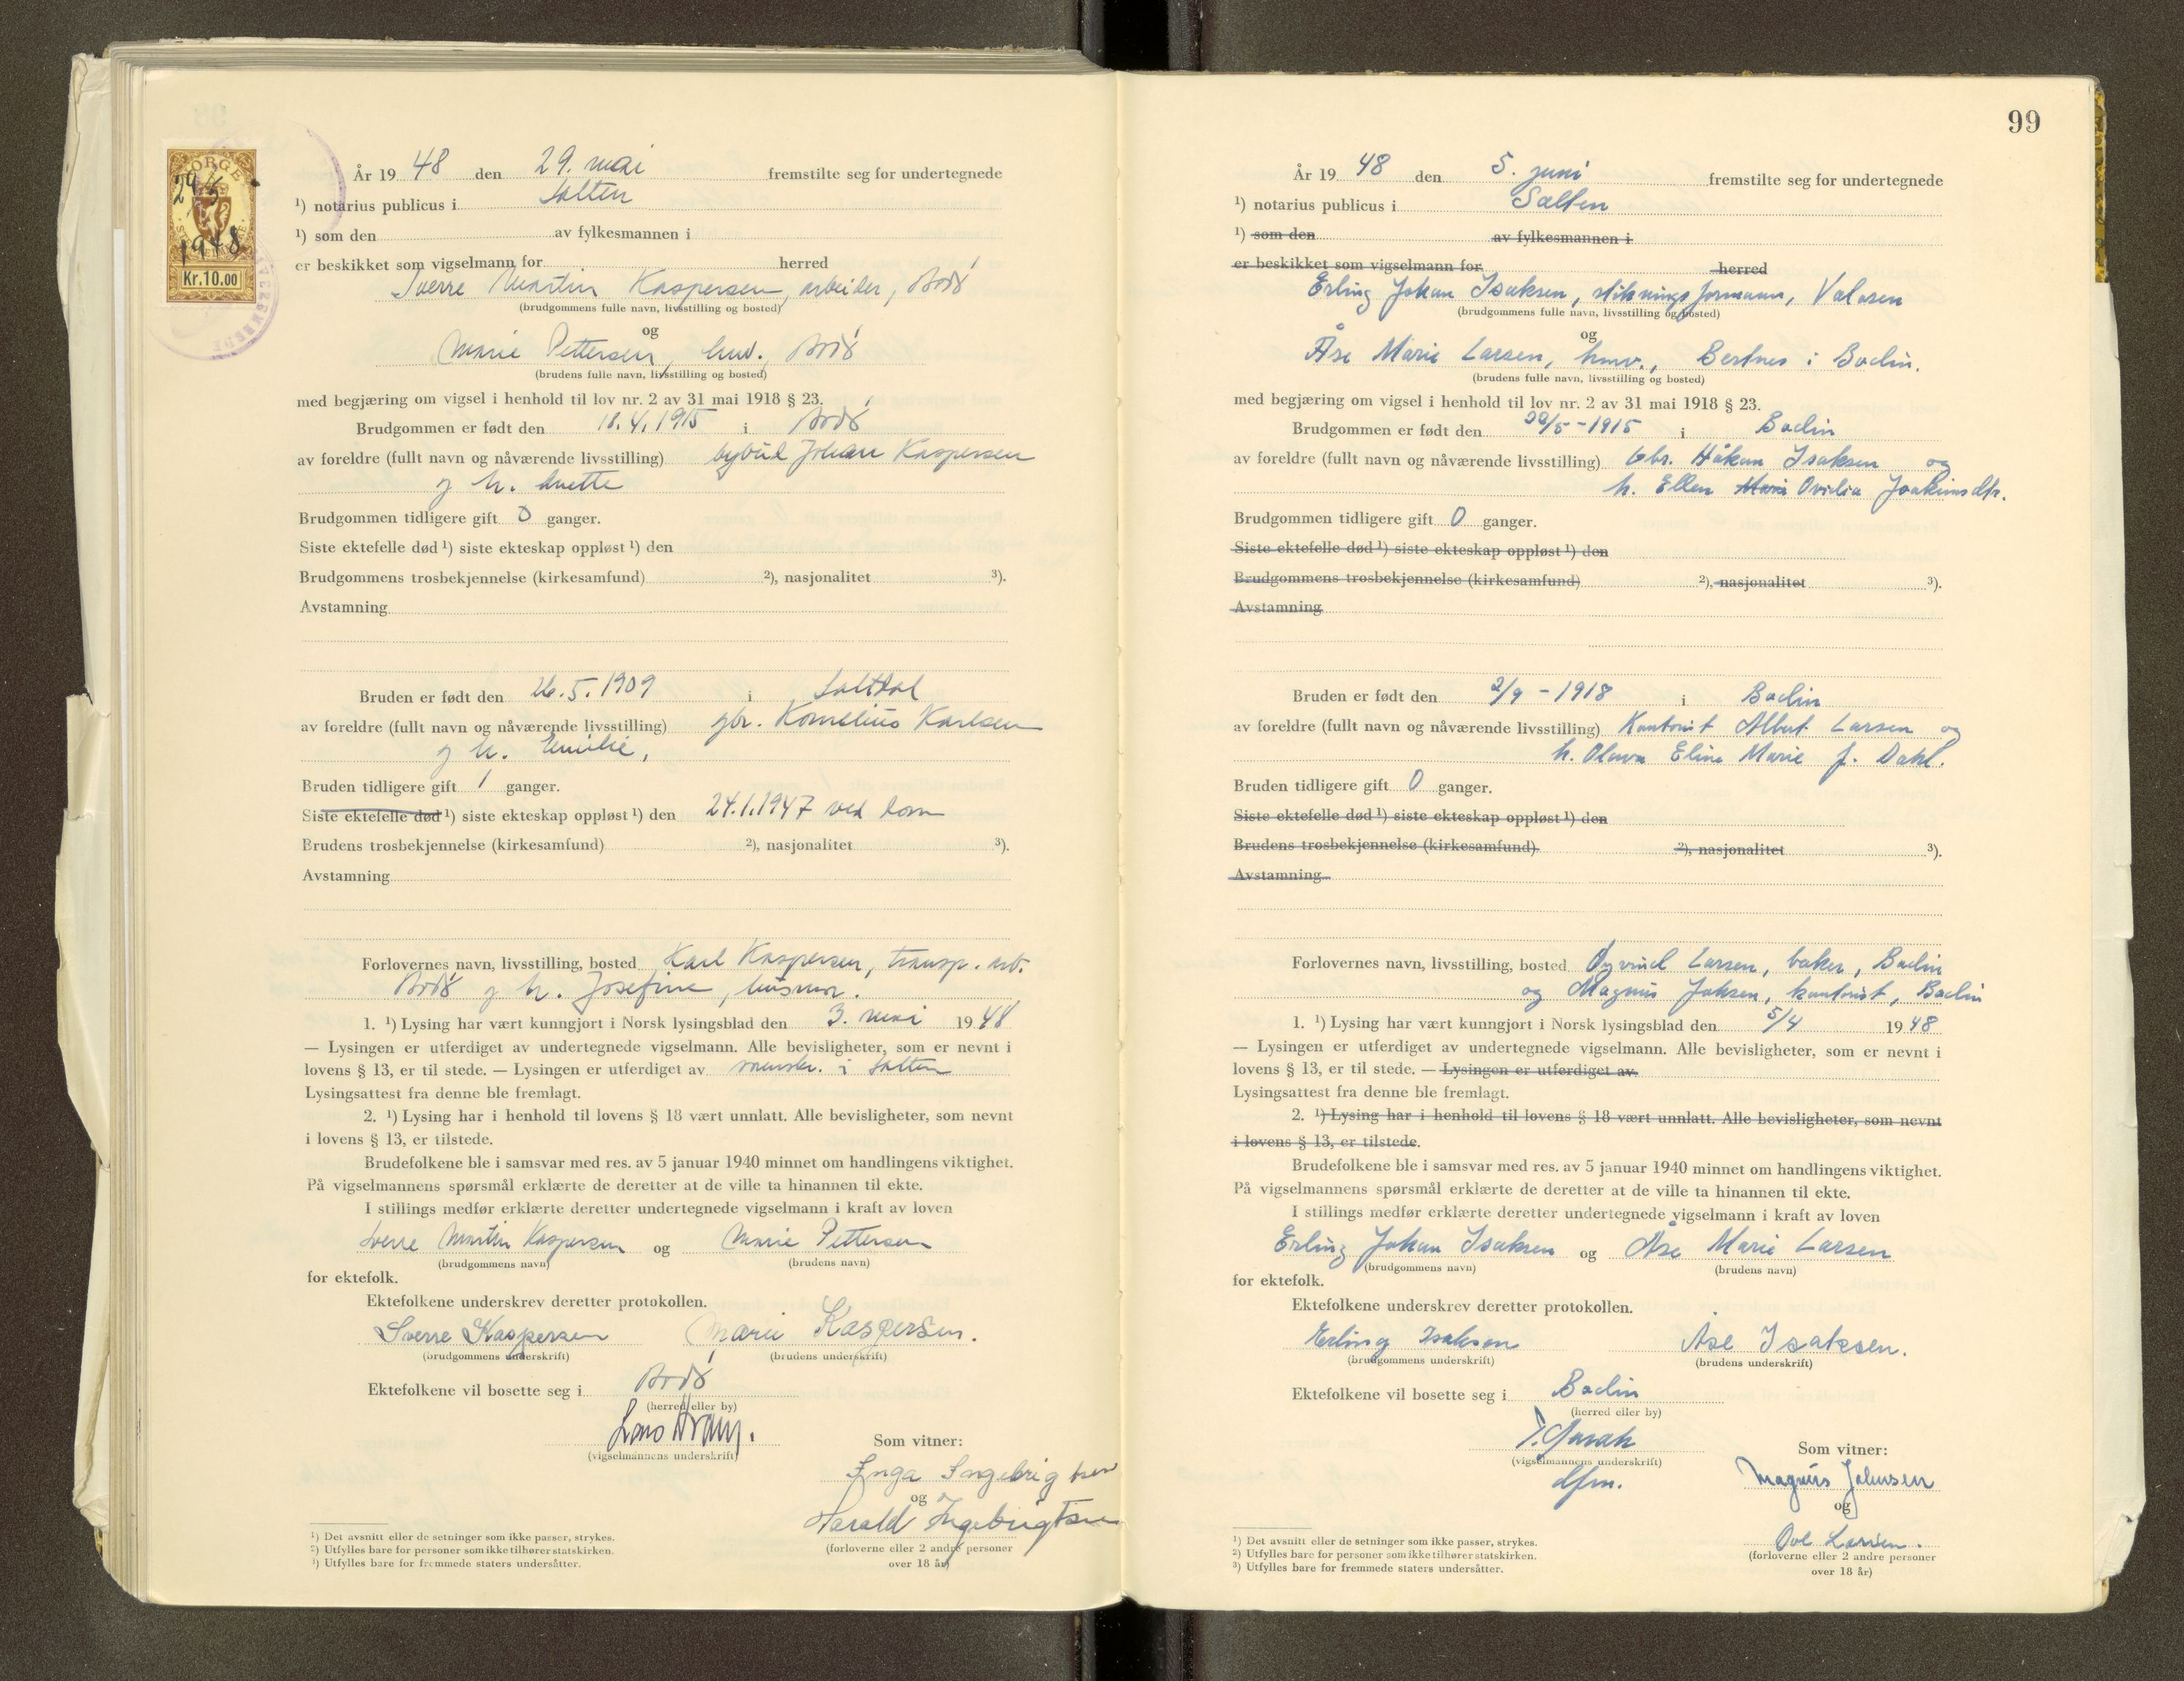 NORGE
29/5
1948
Kr.10.00
År 19 48 den 29. mai fremstilte seg for undertegnede
¹) notarius publicus i Salten
¹) som den av fylkesmannen i
er beskikket som vigselmann for herred
Sverre Martin Kaspersen, arbeider, Bodø
(brudgommens fulle navn, livsstilling og bosted)
og
Marie Pettersen, husv. Bodø
(brudens fulle navn, livsstilling og bosted)
med begjæring om vigsel i henhold til lov nr. 2 av 31 mai 1918 § 23.
Brudgommen er født den 18.4.1915 i Bodø
av foreldre (fullt navn og nåværende livsstilling) bybud Johan Kaspersen
og h. Anette
Brudgommen tidligere gift 0 ganger.
Siste ektefelle død ¹) siste ekteskap oppløst ¹) den
Brudgommens trosbekjennelse (kirkesamfund) ²), nasjonalitet ³).
Avstamning
Bruden er født den 26.5.1909 i Saltdal
av foreldre (fullt navn og nåværende livsstilling) gbr. Kornelius Karlsen
og h. Emilie,
Bruden tidligere gift 1 ganger.
Siste ektefelle død ¹) siste ekteskap oppløst ¹) den 24.1.1947 ved dom
Brudens trosbekjennelse (kirkesamfund) ²), nasjonalitet ³).
Avstamning
Forlovernes navn, livsstilling, bosted Karl Kaspersen, transp. arb.
Bodø og h. Josefine, husmor.
1. ¹) Lysing har vært kunngjort i Norsk lysingsblad den 3. mai 19 48
— Lysingen er utferdiget av undertegnede vigselmann. Alle bevisligheter, som er nevnt i
lovens § 13, er til stede. — Lysingen er utferdiget av sorenskr. i Salten
Lysingsattest fra denne ble fremlagt.
2. ¹) Lysing har i henhold til lovens § 18 vært unnlatt. Alle bevisligheter, som nevnt
i lovens § 13, er tilstede.
Brudefolkene ble i samsvar med res. av 5 januar 1940 minnet om handlingens viktighet.
På vigselmannens spørsmål erklærte de deretter at de ville ta hinannen til ekte.
I stillings medfør erklærte deretter undertegnede vigselmann i kraft av loven
Sverre Martin Kaspersen og Marie Pettersen
(brudgommens navn) (brudens navn)
for ektefolk.
Ektefolkene underskrev deretter protokollen.
Sverre Kaspersen Marie Kaspersen.
(brudgommens underskrift) (brudens underskrift)
Ektefolkene vil bosette seg i Bodø
(herred eller by)
(vigselmannens underskrift)
Som vitner:
Inga Ingebrigtsen
og
Harald Ingebrigtsen
(forloverne eller 2 andre personer
over 18 år)
¹) Det avsnitt eller de setninger som ikke passer, strykes.
²) Utfylles bare for personer som ikke tilhører statskirken.
³) Utfylles bare for fremmede staters undersåtter.
99
År 19 48 den 5. juni fremstilte seg for undertegnede
¹) notarius publicus i Salten
¹) som den av fylkesmannen i
er beskikket som vigselmann for herred
Erling Johan Isaksen, stikningsformann, Valosen
(brudgommens fulle navn, livsstilling og bosted)
og
Åse Marie Larsen, hmv., Bertnes i Bodin.
(brudens fulle navn, livsstilling og bosted)
med begjæring om vigsel i henhold til lov nr. 2 av 31 mai 1918 § 23.
Brudgommen er født den 20/5-1915 i Bodin
av foreldre (fullt navn og nåværende livsstilling) Gbr. Håkon Isaksen og
h. Ellen Marie Ovidia Joakimsdtr.
Brudgommen tidligere gift 0 ganger.
Siste ektefelle død ¹) siste ekteskap oppløst ¹) den
Brudgommens trosbekjennelse (kirkesamfund) ²), nasjonalitet ³).
Avstamning
Bruden er født den 2/9-1918 i Bodin
av foreldre (fullt navn og nåværende livsstilling) Kontorist Albert Larsen og
h. Olava Eline Marie f. Dahl.
Bruden tidligere gift 0 ganger.
Siste ektefelle død ¹) siste ekteskap oppløst ¹) den
Brudens trosbekjennelse (kirkesamfund) ²), nasjonalitet ³).
Avstamning
Forlovernes navn, livsstilling, bosted Øyvind Larsen, baker, Bodin
og Magnus Johnsen, kontorist, Bodin
1. ¹) Lysing har vært kunngjort i Norsk lysingsblad den 5/4 19 48
— Lysingen er utferdiget av undertegnede vigselmann. Alle bevisligheter, som er nevnt i
lovens § 13, er til stede. — Lysingen er utferdiget av
Lysingsattest fra denne ble fremlagt.
2. ¹) Lysing har i henhold til lovens § 18 vært unnlatt. Alle bevisligheter, som nevnt
i lovens § 13, er tilstede.
Brudefolkene ble i samsvar med res. av 5 januar 1940 minnet om handlingens viktighet.
På vigselmannens spørsmål erklærte de deretter at de ville ta hinannen til ekte.
I stillings medfør erklærte deretter undertegnede vigselmann i kraft av loven
Erling Johan Isaksen og Åse Marie Larsen
(brudgommens navn) (brudens navn)
for ektefolk.
Ektefolkene underskrev deretter protokollen.
Erling Isaksen Åse Isaksen.
(brudgommens underskrift) (brudens underskrift)
Ektefolkene vil bosette seg i Bodin
(herred eller by)
(vigselmannens underskrift)
dfm.
Som vitner:
Magnus Johnsen
og
Ove Larsen.
(forloverne eller 2 andre personer
over 18 år)
¹) Det avsnitt eller de setninger som ikke passer, strykes.
²) Utfylles bare for personer som ikke tilhører statskirken.
³) Utfylles bare for fremmede staters undersåtter.